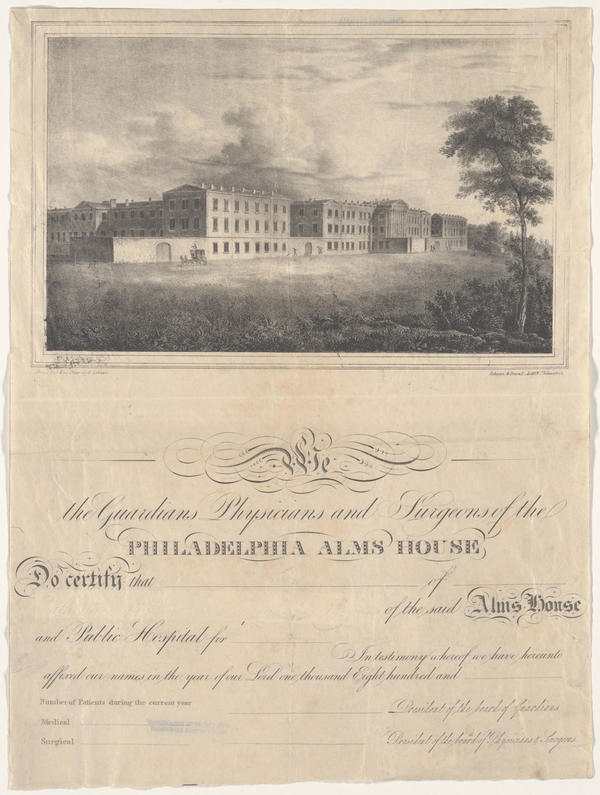 We
the Guardians Physicians and Surgeons of the
PHILADELPHIA ALMS HOUSE
Do certify that of
of the said Alms House
and Public Hospital for
In testimony whereof we have hereunto
affixed our names in the year of our Lord one thousand Eight hundred and
Number of Patients during the current year
President of the board of Guardians
Medical
Surgical
President of the board of Physicians & Surgeons